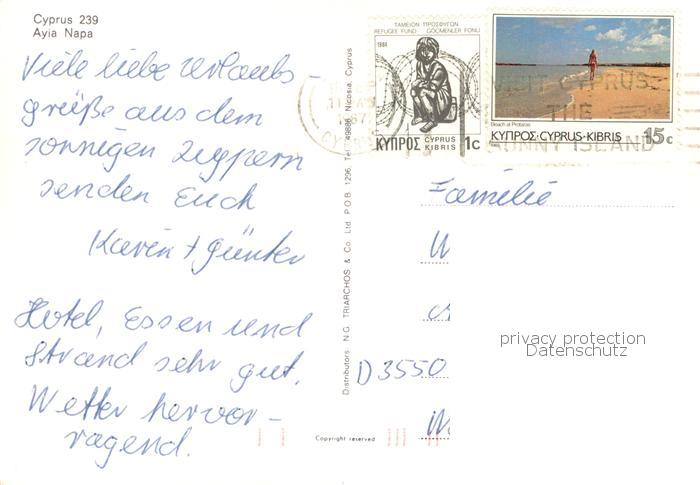 Cyprus 239
Ayia Napa
Viele liebe Urlaubs-
grüße aus dem
sonnigen Zypern
senden Euch
Karin + Günter
Hotel, Essen und
Strand sehr gut.
Wetter hervor-
ragend.
Distributors N.G. TRIARCHOS & Co. Ltd. P.O.B. 1296, Tel. 49886, Nicosia, Cyprus
Copyright reserved
ΤΑΜΕΙΟΝ ΠΡΟΣΦΥΓΩΝ
REFUGEE FUND GÖÇMENLER FONU
1984
ΚΥΠΡΟΣ CYPRUS KIBRIS 1c
VISIT CYPRUS
THE
SUNNY ISLAND
Beach at Protaras
ΚΥΠΡΟΣ·CYPRUS·KIBRIS 15c
1985
Familie
D 3550
privacy protection
Datenschutz